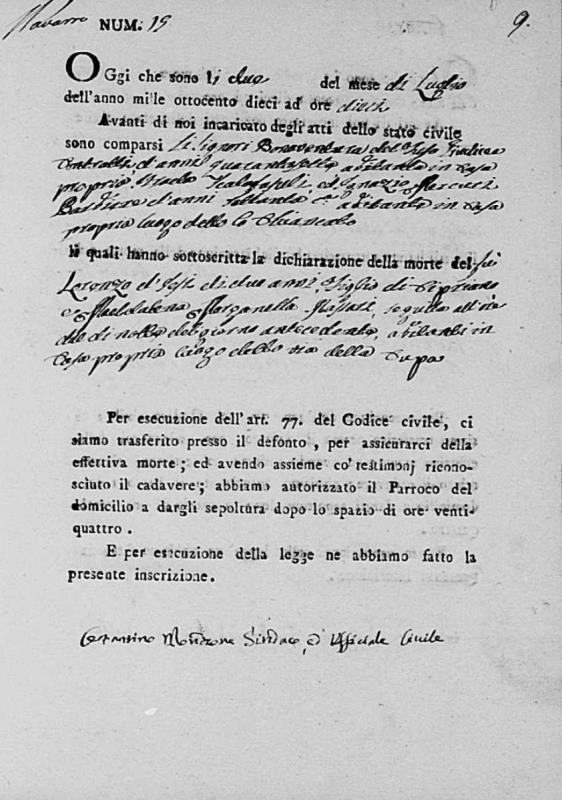 Navarro NUM. 19 9.
OGgi che sono li due del mese di Luglio
dell'anno mille ottocento dieci ad ore dieci
Avanti di noi incaricato degli atti dello stato civile
sono comparsi li Signori Bonaventura
d'anni quarantasette abitante in Casa
propria, ed Ignazio
Barbiere d'anni settanta abitante in Casa
propria luogo detto lo
li quali hanno sottoscritta la dichiarazione della morte del fù
Lorenzo di due anni, Figlio di Cipriano
e Maddalena Morganella seguita all'ore
due di notte del giorno antecedente, abitanti in
Casa propria luogo detto via della Cupa
Per esecuzione dell'art. 77. del Codice civile, ci
siamo trasferito presso il defonto, per assicurarci della
effettiva morte; ed avendo assieme co' testimonj ricono-
sciuto il cadavere; abbiamo autorizzato il Parroco del
domicilio a dargli sepoltura dopo lo spazio di ore venti-
quattro.
E per esecuzione della legge ne abbiamo fatto la
presente inscrizione.
Costantino Sindaco, ed Ufficiale Civile